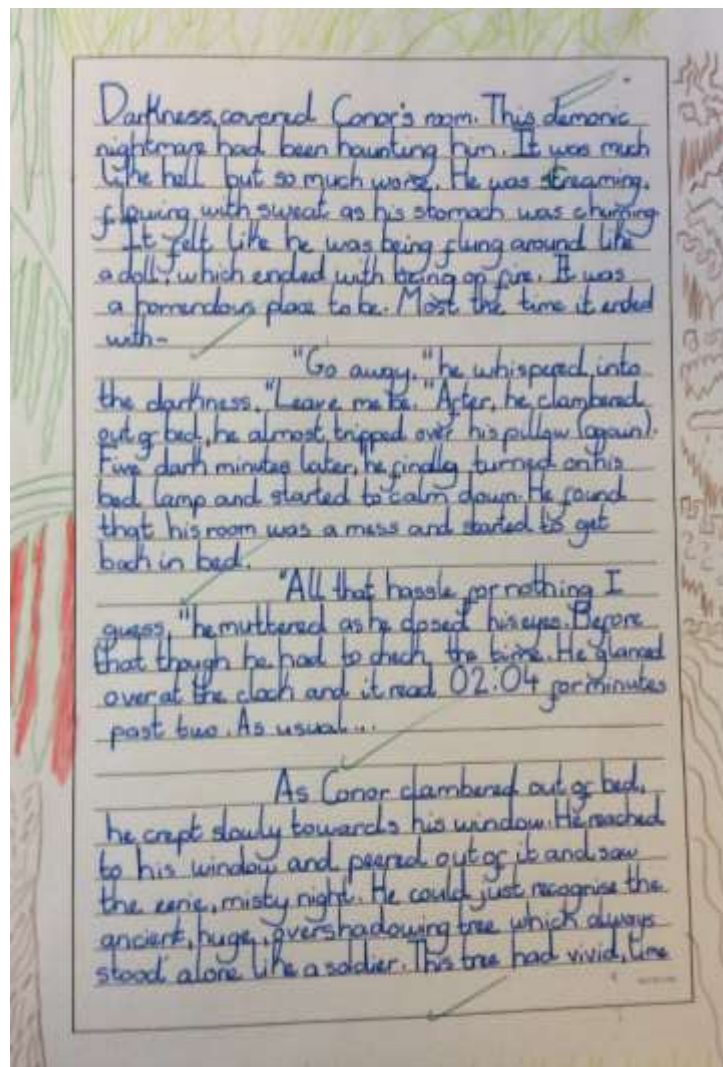 Darkness, covered Conor's room. This demonic
nightmare had been haunting him. It was much
like hell but so much worse. He was streaming,
flowing with sweat as his stomach was churning.
It felt like he was being flung around like
a doll, which ended with being on fire. It was
a horrendous place to be. Most the time it ended
with-
"Go away," he whispered into
the darkness, "Leave me be." After, he clambered
out of bed, he almost tripped over his pillow (again).
Five dark minutes later, he finally turned on his
bed lamp and started to calm down. He found
that his room was a mess and started to get
back in bed.
"All that hassle for nothing I
guess," he muttered as he closed his eyes. Before
that though he had to check the time. He glanced
over at the clock and it read 02:04 for minutes
past two. As usual...
As Conor clambered out of bed,
he crept slowly towards his window. He reached
to his window and peered out of it and saw
the eerie, misty night. He could just recognise the
ancient, huge, overshadowing tree which always
stood alone like a soldier. This tree had vivid, time